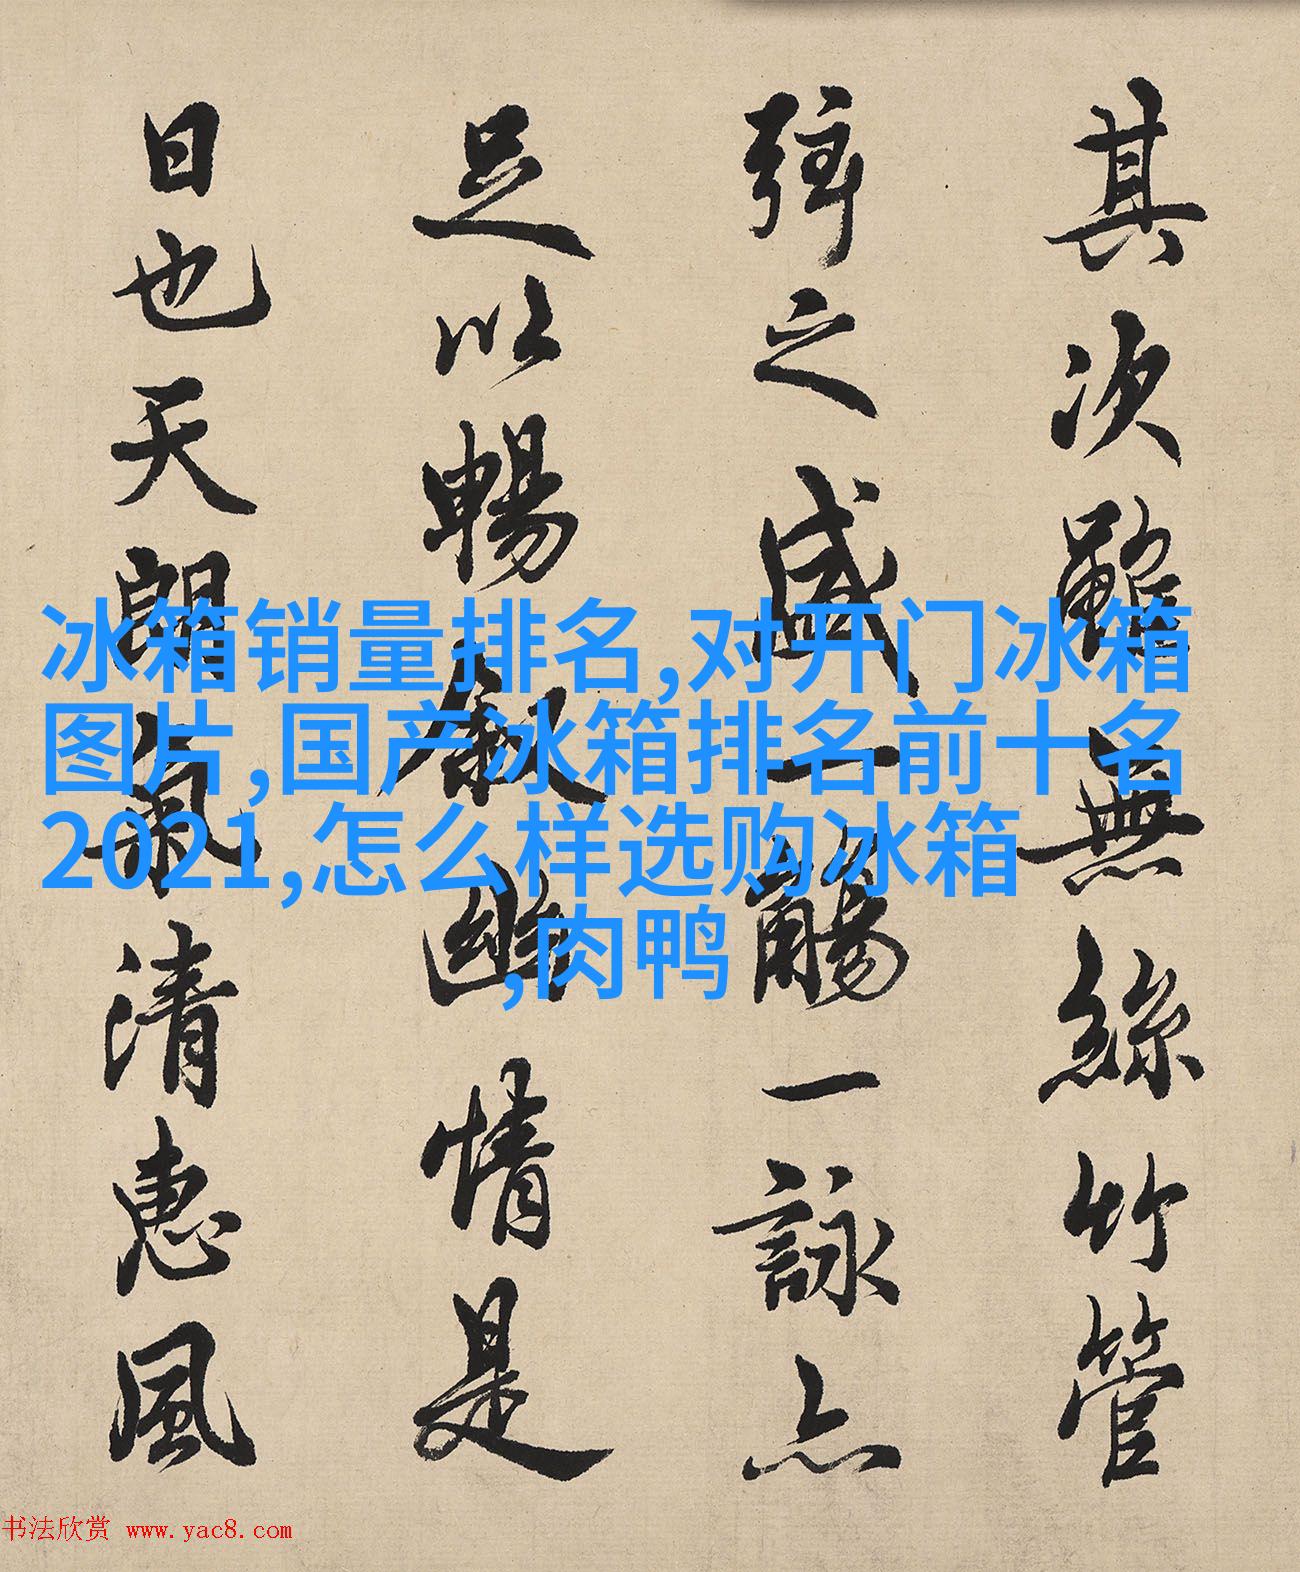 其次雖無絲竹管
弦之盛一觴一詠亦
足以暢敘幽情是
日也天朗氣清惠風
冰箱销量排名,对开门冰箱
图片,国产冰箱排名前十名
2021,怎么样选购冰箱
,肉鸭
书法欣赏 www.yac8.com